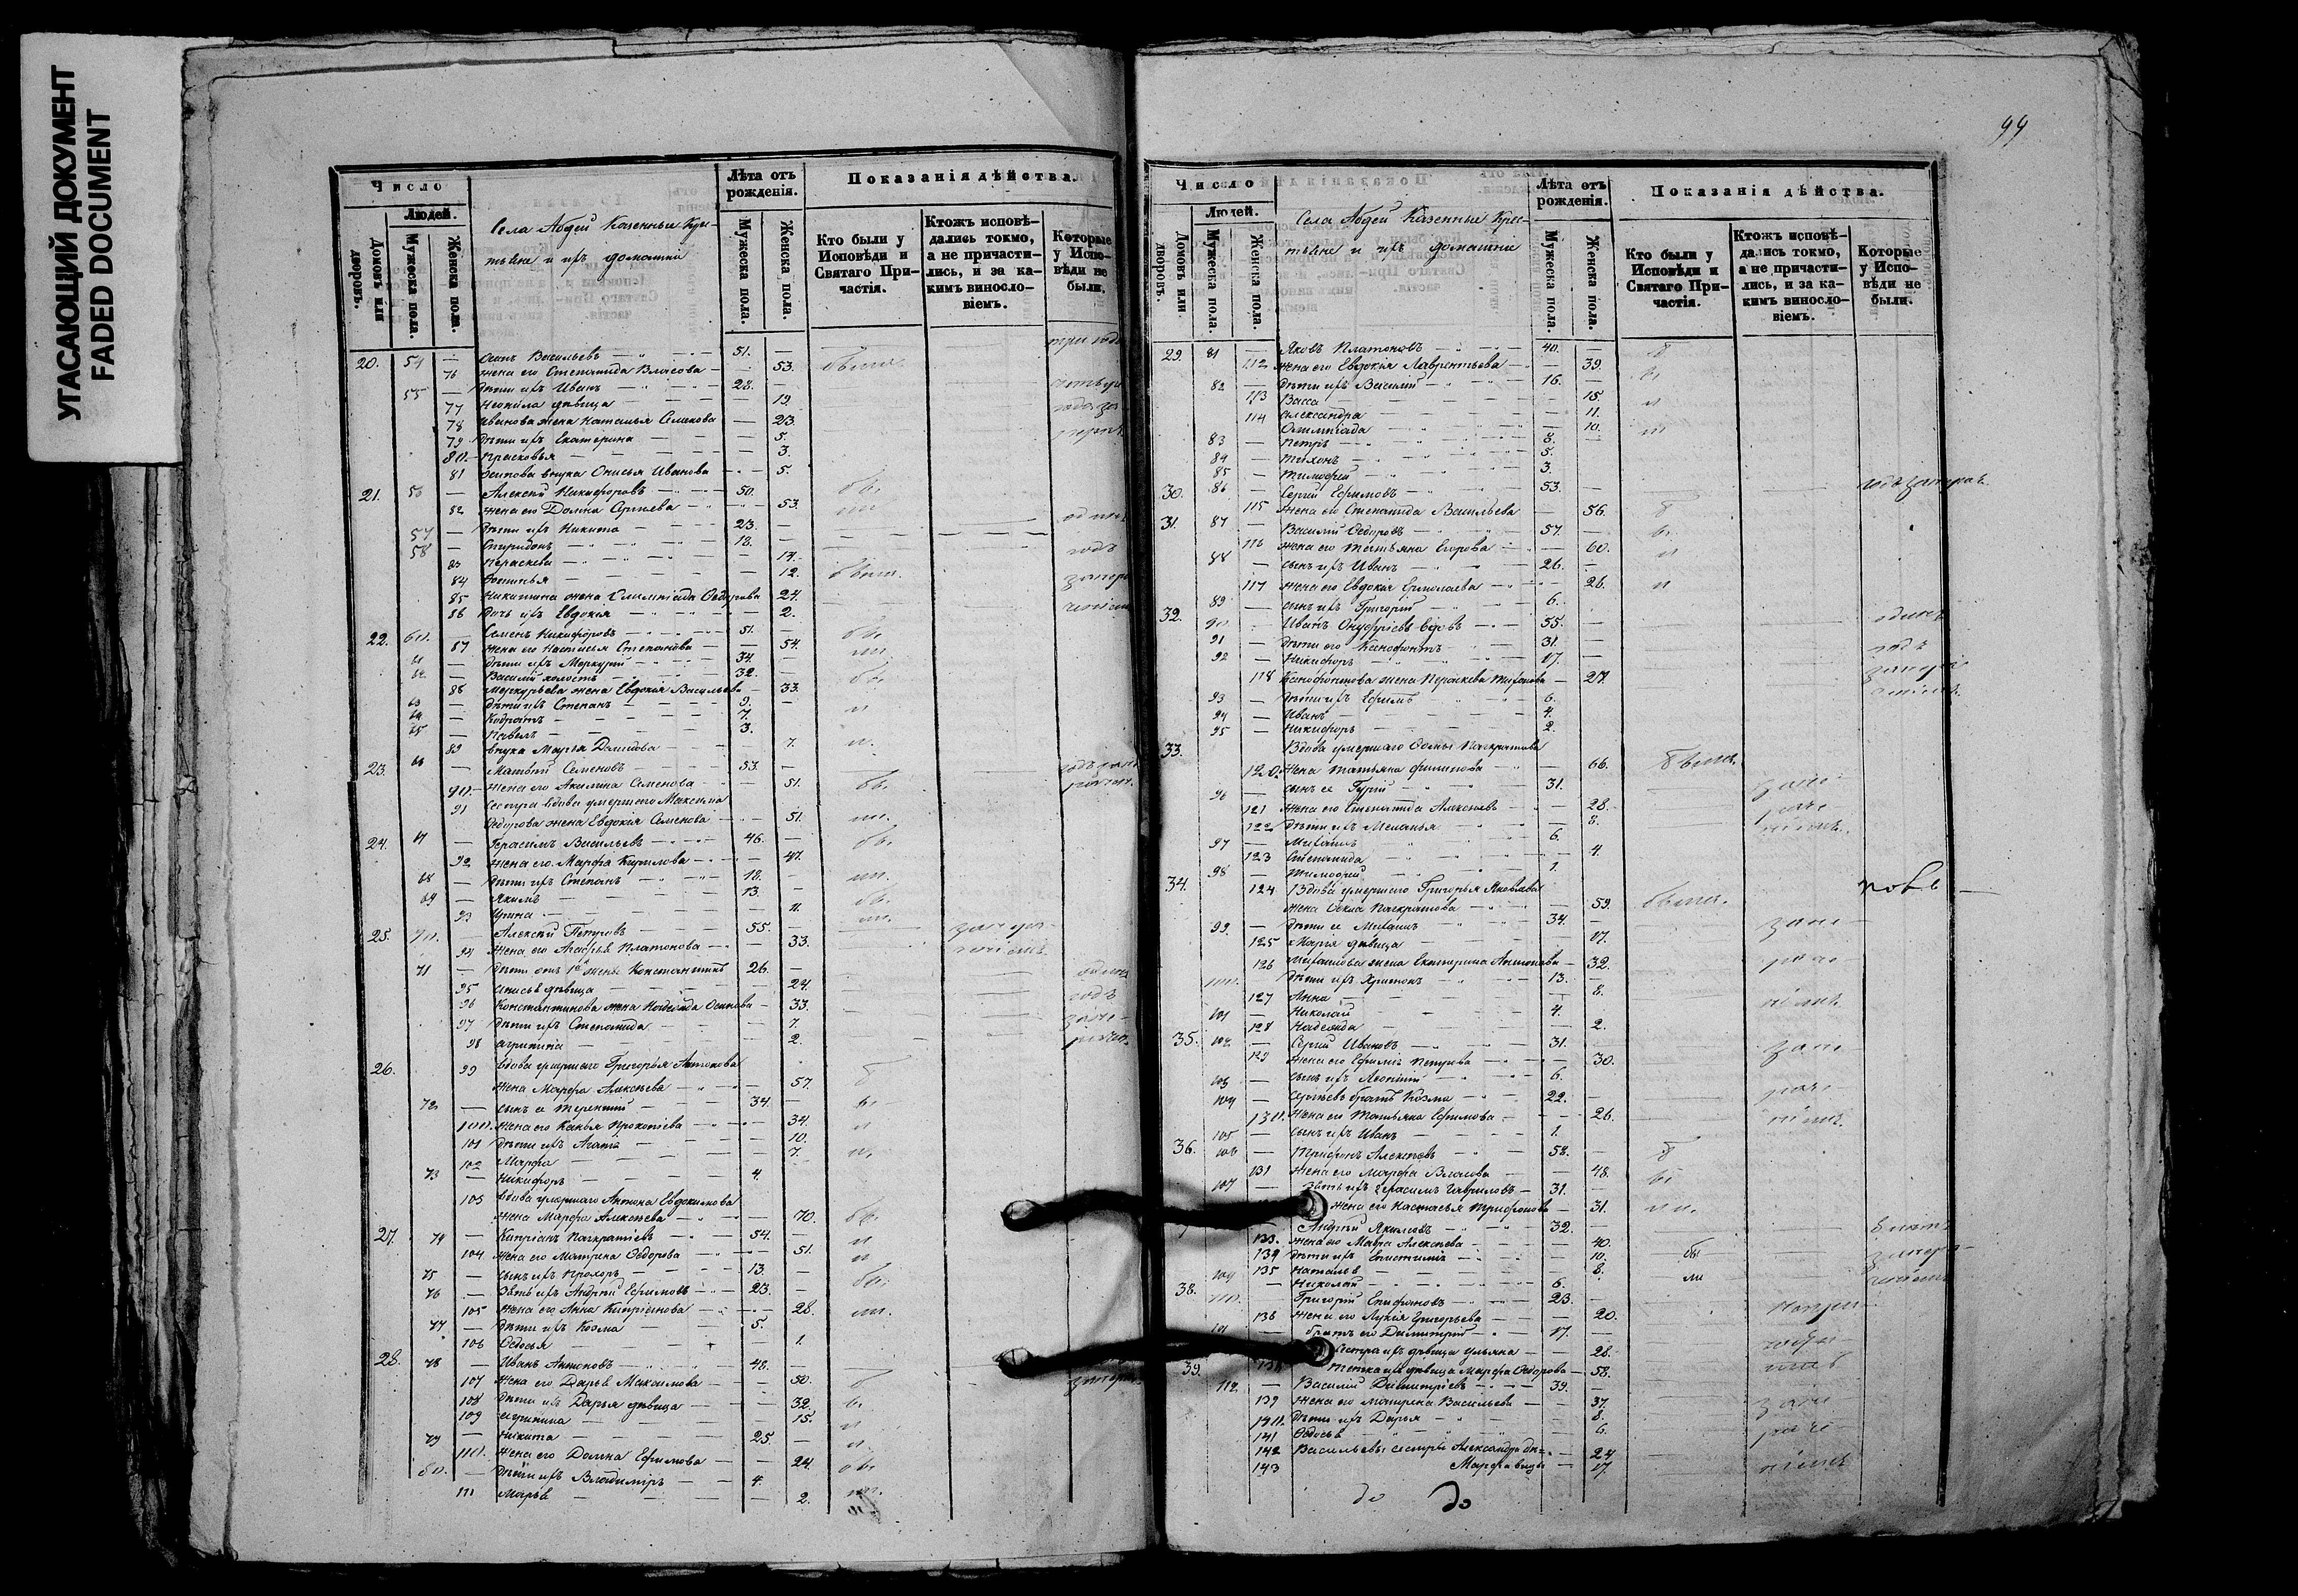 УГАСАЮЩИЙ ДОКУМЕНТ
FADED DOCUMENT
Число
Людей.
Домовъ или дворовъ.
Мужеска пола.
Женска пола.
Села Абдей Казенные Кре-
тьяне и ихъ домашнiи
Лѣта отъ рожденія.
Мужеска пола.
Женска пола.
Показанія дѣйства.
Кто были у Исповѣди и Святаго Причастія.
Ктожъ исповѣ-
дались токмо,
а не причасти-
лись, и за ка-
кимъ винословіемъ.
Которые
у Испо-
вѣди не
были.
20. 54 — Осипъ Васильевъ — 51. —
76 жена его Степанида Власова — 53.
55 — дѣти ихъ Иванъ — 28. —
77 Неонила дѣвица — 19
78 Иванова жена Наталья Семенова — 23.
79 дѣти ихъ Екатерина — 5.
80. Прасковья — 3.
81 Осипова внука Онисья Иванова — 5.
21. 56 — Алексѣй Никифоровъ — 50. —
82 жена его Домна Сергѣева — 53.
57 — дѣти ихъ Никита — 23. —
58 — Спиридонъ — 18. —
83 Параскева — 17.
84 Фотинья — 12.
85 Никитина жена Олимпіада Ѳедорова 24.
86 дочь ихъ Евдокія — 2.
22. 60. — Семенъ Никифоровъ — 51. —
87 жена его Настасья Степанова — 54.
61 — дѣти ихъ Меркурій — 34. —
62 — Василій холостъ — 32. —
88 Меркурьева жена Евдокія Васильева — 33.
63 — дѣти ихъ Степанъ — 9. —
64 — Кодратъ — 7.
65 — Павелъ — 3.
89 внука Марья Демидова — 7.
23. 66 — Матвѣй Семеновъ — 53. —
90. жена его Акилина Семенова — 51.
91 Сестра вдова умершаго Максима
Ѳедорова жена Евдокія Семенова — 51.
24. 67 — Герасимъ Васильевъ — 46. —
92 жена его Марфа Кирилова — 47.
68 — дѣти ихъ Степанъ — 18. —
69 — Якимъ — 13. —
93 Ирина — 11.
25. 70. — Алексѣй Петровъ — 55. —
94 жена его Агафья Платонова — 33.
71 — дѣти отъ 1й жены Константинъ 26. —
95 Анисья дѣвица — 24.
96 Константинова жена Надежда Осипова — 33.
97 дѣти ихъ Степанида — 7.
98 Агрипина — 2.
26. 99 вдова умершаго Григорья Антонова
жена Марфа Алексѣева — 57.
72 — сынъ ея Терентій — 34. —
100. жена его Ксенья Прокопіева — 34.
101 дѣти ихъ Агапія — 10.
102 Марфа — 7.
73 — Никифоръ — 4.
103 вдова умершаго Антона Евдокимова
жена Марфа Алексѣева — 70.
27. 74 — Кипріанъ Панкратіевъ — 54. —
104 жена его Матрена Ѳедорова — 51.
75 — сынъ ихъ Прохоръ — 13. —
76 — зять ихъ Андрей Ефимовъ — 23. —
105 жена его Анна Кипріанова — 28.
77 — дѣти ихъ Козма — 5.
106 Ѳедосья — 1.
28. 78 — Иванъ Антоновъ — 48. —
107 жена его Дарья Максимова — 50.
108 дѣти ихъ Дарья дѣвица — 32.
109 Агрипина — 15.
79 — Никита — 25. —
110. жена его Домна Ефимова — 24.
80. — дѣти ихъ Владиміръ — 4.
111 Марья — 2.
99
Число
Людей.
Домовъ или дворовъ.
Мужеска пола.
Женска пола.
Села Абдей Казенные Крес-
тьяне и ихъ домашніе
Лѣта отъ рожденія.
Мужеска пола.
Женска пола.
Показанія дѣйства.
Кто были у Исповѣди и Святаго Причастія.
Ктожъ исповѣ-
дались токмо,
а не причасти-
лись, и за ка-
кимъ винословіемъ.
Которые
у Испо-
вѣди не
были.
29. 81 — Яковъ Платоновъ — 40. —
112 жена его Евдокія Лаврентьева — 39.
82 — дѣти ихъ Василій — 16. —
113 Васса — 15.
114 Александра — 11.
Олимпіада — 10.
83 — Петръ — 8.
84 — Тихонъ — 5.
85 — Тимофей — 3.
30. 86 — Сергій Ефимовъ — 53. —
115 жена его Степанида Васильева — 56.
31. 87 — Василій Ѳедоровъ — 57. —
116 жена его Татьяна Егорова — 60.
88 — сынъ ихъ Иванъ — 26. —
117 жена его Евдокія Ермолаева — 26.
89 — сынъ ихъ Григорій — 6.
32. 90. — Иванъ Онуфріевъ вдовъ — 55. —
91 — дѣти его Ксенофонтъ — 31. —
92 — Никифоръ — 17. —
118 Ксенофонтова жена Параскева — 27.
93 — дѣти ихъ Ефимъ — 6.
94 — Иванъ — 4.
95 — Никифоръ — 2.
33. Вдова умершаго Ѳомы Панкратова
120. жена Татьяна Филипова — 66. были.
96 — сынъ ея Гурій — 31. —
121 жена его Степанида Алексѣева — 28.
122 дѣти ихъ Меланья — 8.
97 — Михаилъ — 6.
123 Степанида — 4.
98 — Тимофей — 1.
34. 124 Вдова умершаго Григорья Яковлева
жена Ѳекла Панкратова — 59. были.
99. — дѣти ея Михаилъ — 34. —
125 Марія дѣвица — 17.
126 Михаилова жена Екатерина Антонова — 32.
100. — дѣти ихъ Харитонъ — 13. —
127 Анна — 8.
101 — Николай — 4.
128 Надежда — 2.
35. 102 — Сергій Ивановъ — 31. —
129 жена его Ефимія Петрова — 30.
103 — сынъ ихъ Леонтій — 6.
104 — Сергѣевъ братъ Козма — 22. —
130. жена его Татьяна Ефимова — 26.
105 — сынъ ихъ Иванъ — 1.
36. 106 — Трифонъ Алексѣевъ — 58. —
131 жена его Марфа Власова — 48.
107 — зять ихъ Герасимъ Гавриловъ — 31. —
жена его Настасья Трифонова — 31.
— Андрей Якимовъ — 32. —
133. жена его Мавра Алексѣева — 40.
134 дѣти ихъ Епистимія — 10.
135 Наталья — 8.
109 — Николай — 6.
38. 110. — Григорій Епифановъ — 23. —
136 жена его Лукія Григорьева — 20.
— братъ его Димитрій — 17. —
Сестра ихъ дѣвица Ульяна — 28.
39. тетка ихъ дѣвица Марфа Ѳедорова — 58.
112. — Василій Димитріевъ — 39. —
139 жена его Матрена Васильева — 37.
140. дѣти ихъ Дарья — 8.
141 Ѳедосья — 6.
142 Васильевы сестры Александра дѣ- — 24
143 Марфа вицы — 17.
до до